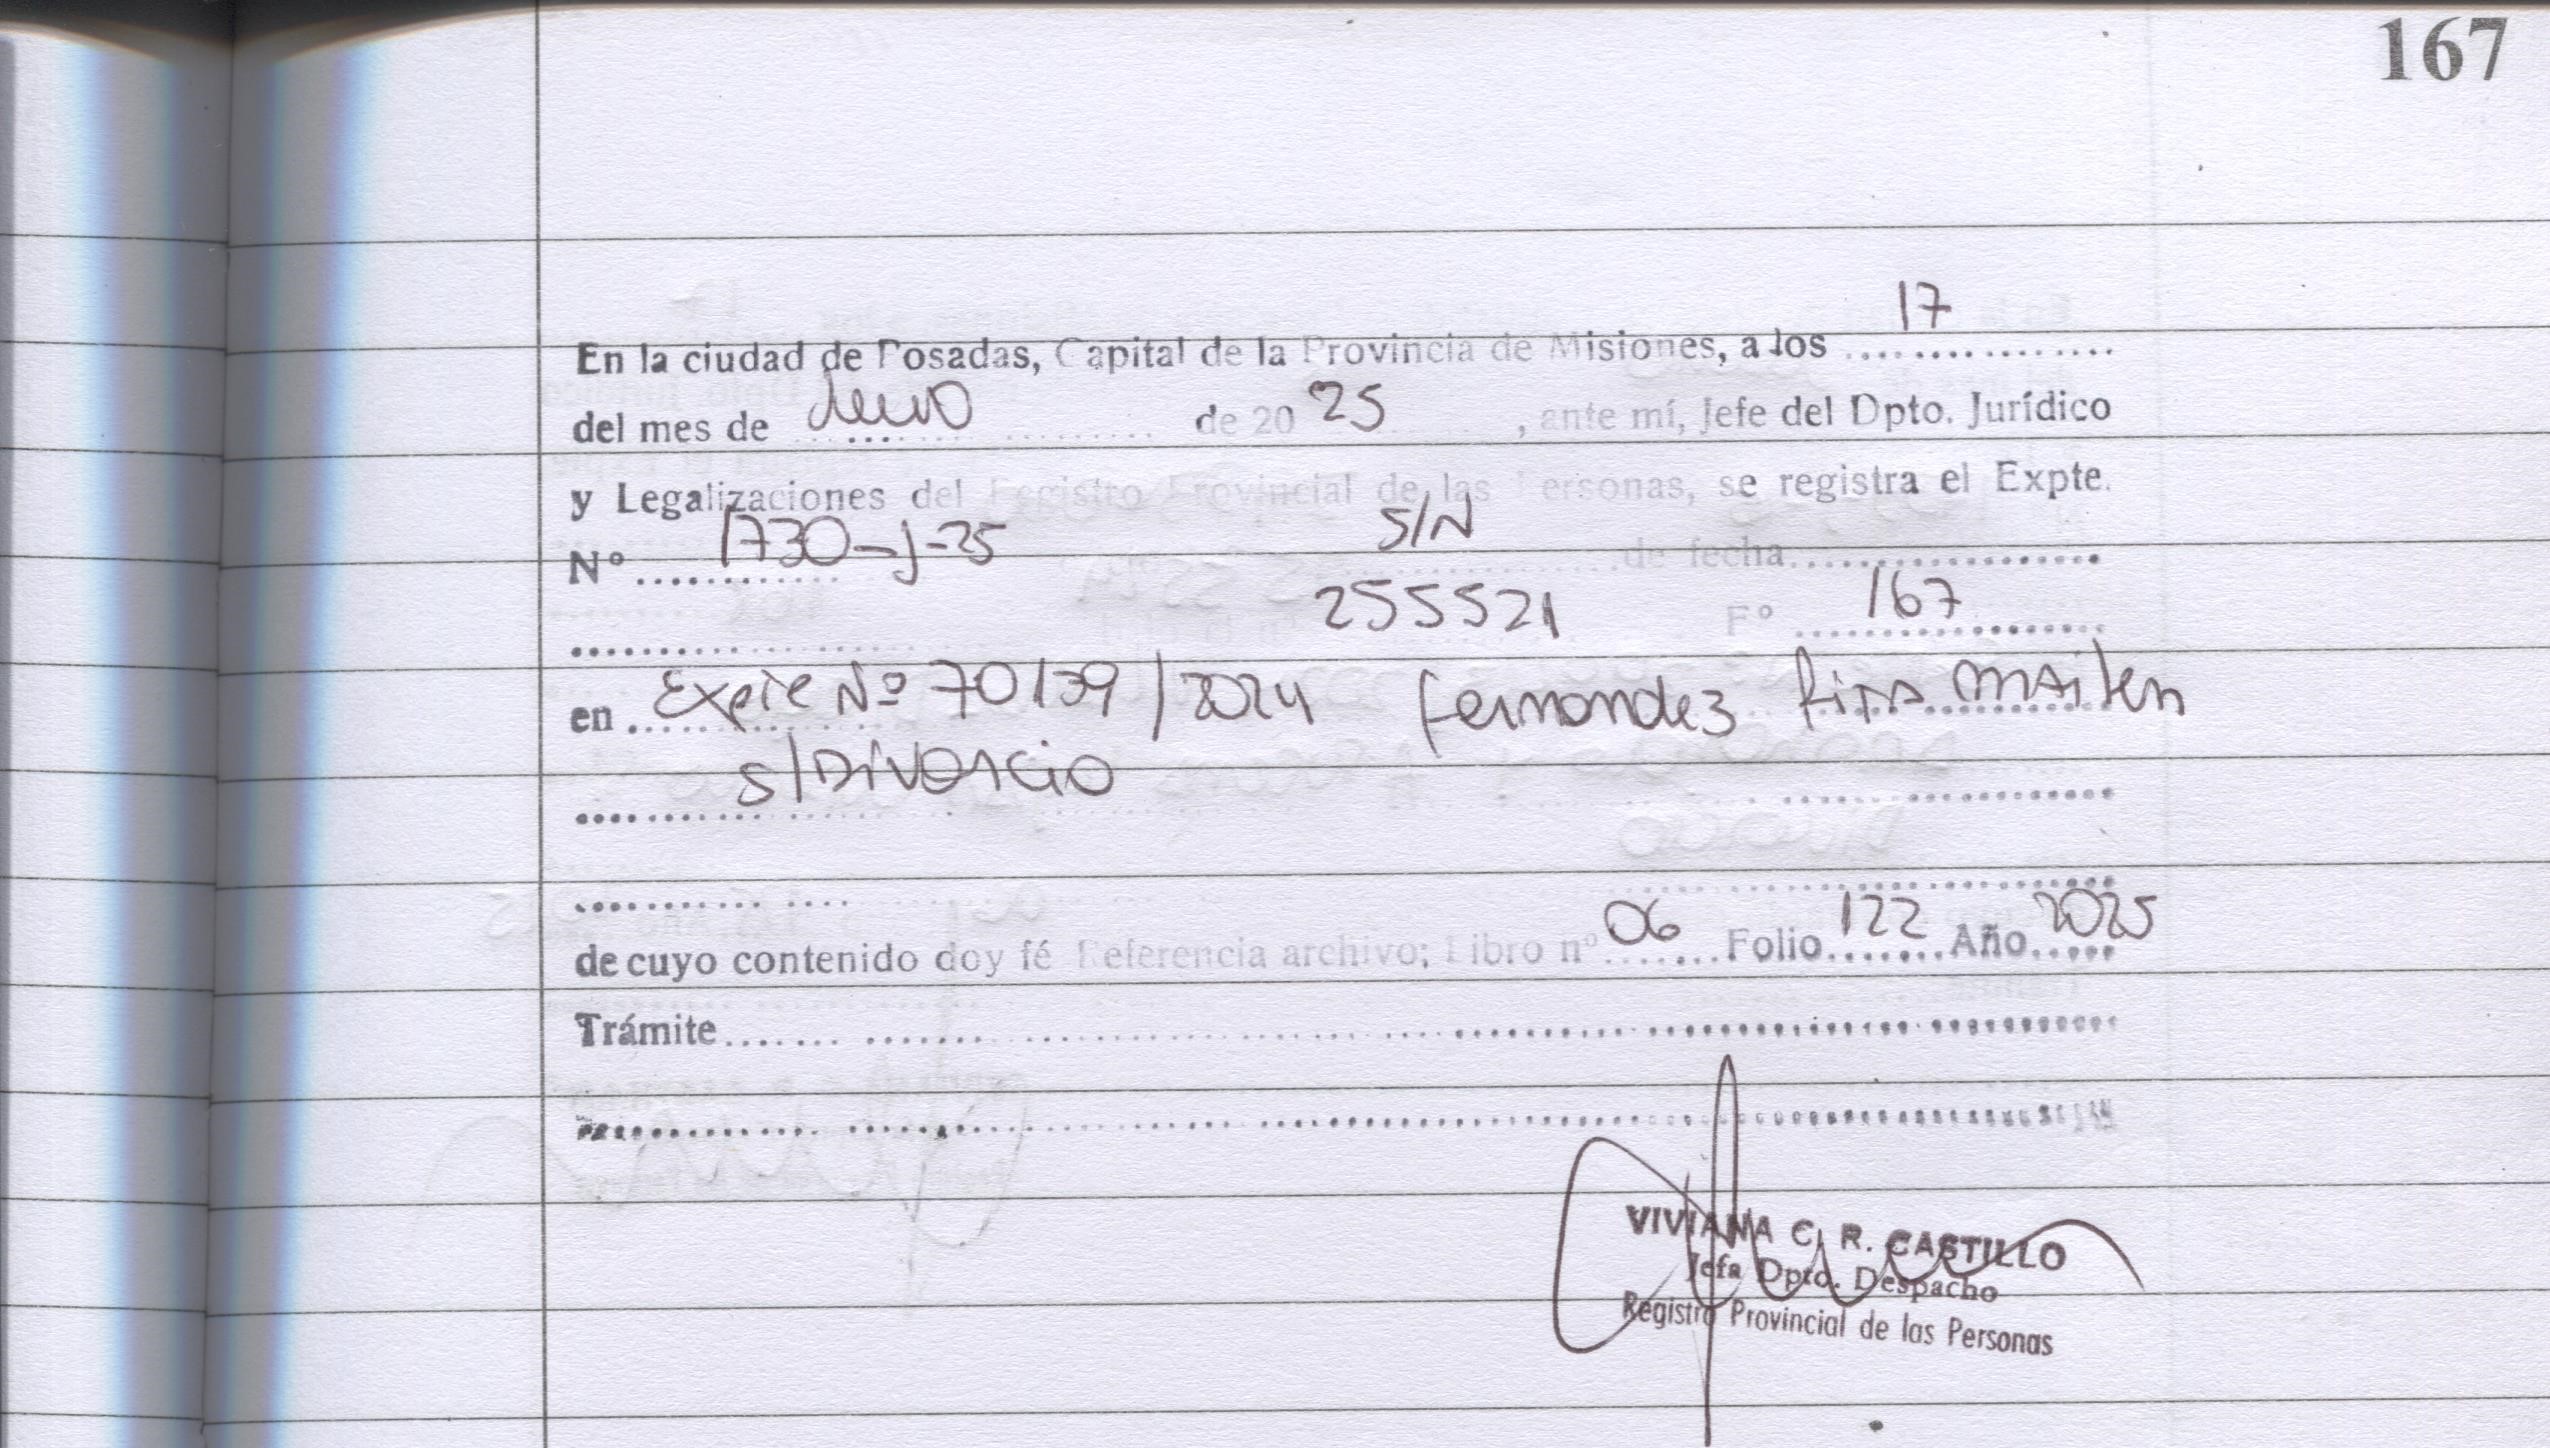 167
En la ciudad de Posadas, Capital de la Provincia de Misiones, a los 17
del mes de Junio de 20 25, ante mí, Jefe del Dpto. Jurídico
y Legalizaciones del Registro Provincial de las Personas, se registra el Expte.
Nº 1730-J-25 S/N de fecha
255521 Fº 167
en Expte Nº 70139/2024 Fernandez Maiten
S/Divorcio
de cuyo contenido doy fé Referencia archivo; Libro nº 06 Folio 122 Año 2025
Trámite
VIVIANA C. R. CASTILLO
Jefa Dpto. Despacho
Registro Provincial de las Personas